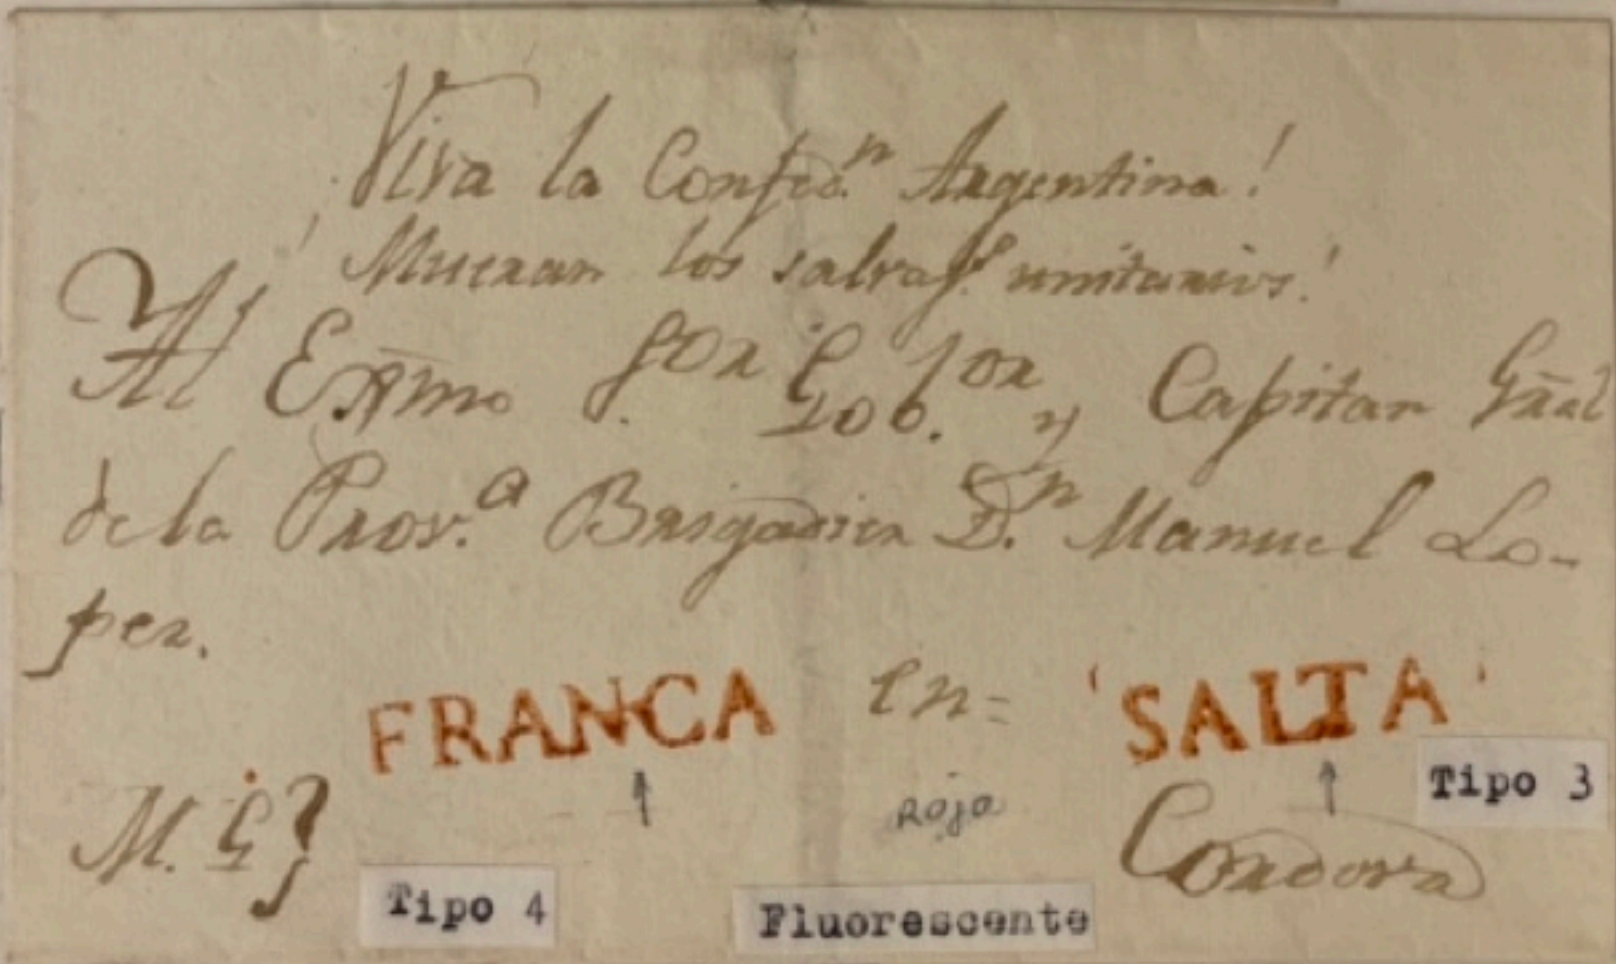 ¡Viva la Confed.n Argentina!
¡Mueran los salvag.s unitarios!
Al Exmo Sor. Gob.or y Capitan Gñal
de la Prov.a Brigadier D.n Manuel Lo-
pez.
FRANCA en= SALTA
M. G}
Roja
Tipo 3
Cordova
Tipo 4
Fluorescente